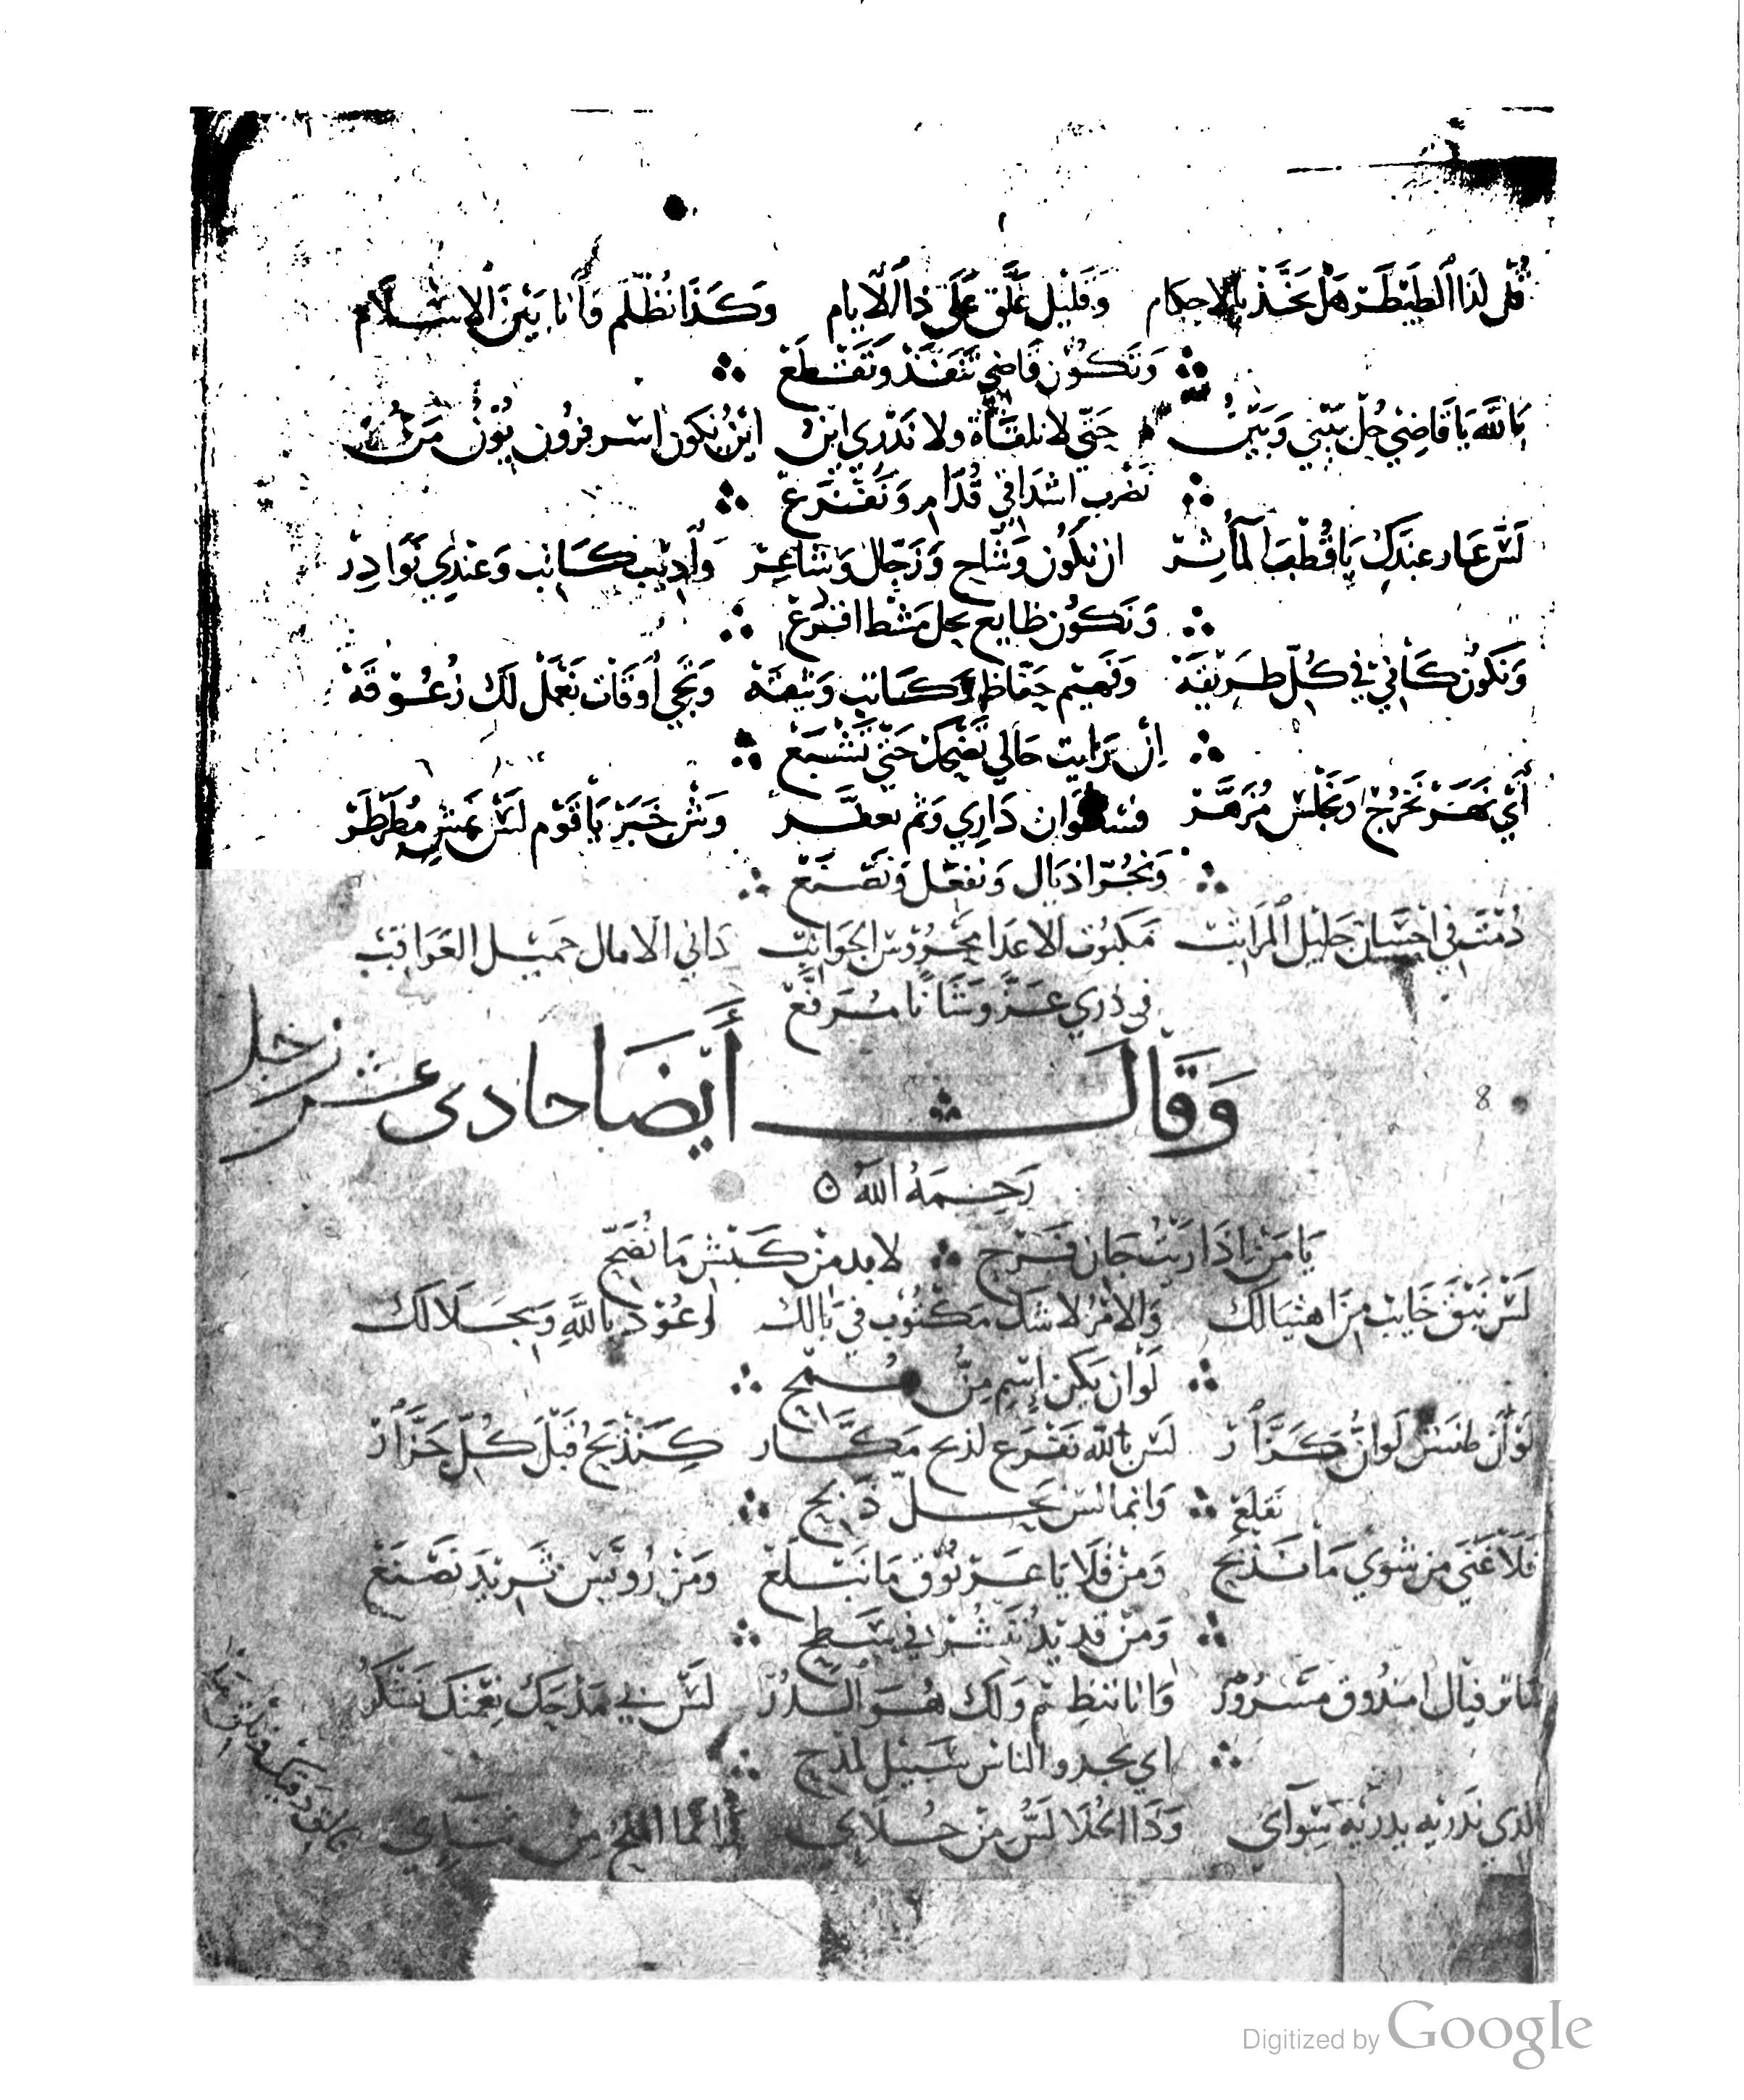 قُل لذا الطَيطَر هَل نَحَّذ بالاحكام وَقليل عَلَّق عَلَى ذا الايام وَكَذا نُظلَم وَأنا بَيْنَ الإسلام
وَنَكُون قَاضِي نَنَفَذ وَنَقْطَع
بَاللَّه يَا قَاضِي حُل بَيْنِي وَبَيْنُ حَتّى لا نلقاه ولا نَدْرى ايْن ايْنْ نكون
نَضْرب اشدَاقي قُدَّامِ وَنَفْتَرعْ
لَسْ عَار عندَك يَا قُطبَ المآثِرْ ان نكُون وَشَّاح وَزَجّال وَشاعِرْ وَأديْب كَاتِب وَعنْدِي نَوَادِرْ
وَنَكُون ضايع بحل مَشْط اقْرعْ
وَنكُون كَافي في كُلّ طَرِيقَهْ وَفَهيْم حَفّاظ وَكَاتِب وَثِيقَهْ وَنجي أوقَات نَعْمَلْ لَك زُعُوقَهْ
اِن رَايت حَالي تَضْحَكْ حَتّى تَشْبَعْ
أَيْ نَهَرْ نَخرُجْ وَنجْلسْ مُزَهَّرْ دَارِي وَثم نعطَّر وَشْ خَبَرْ يَا قَوْم لَسْ نمشِ مُطَرْطَرْ
وَنَجُرّ اذيَال وَنفْعَل وَنَصْنَعْ
دُمْتَ في احْسَان جَليل المَرَاتِبْ مَكبُوت الاعدَا مَحْرُوس الجَوانِبْ دَاني الامال جَميل العَوَاقِبْ
في ذرى عِزّ وَشَانًا مُرَفَّعْ
وَقَالَ أَيْضَا حادى عشر زجل
8
رَحِمَهُ اللهُ
يَا مَن اذَا رَيْتُ جَان فَرَح لا بد مِنْ كَبْش مَا نُضَحّ
لَسْ نَبْقَ خَايب مِنَ اهتبَالك وَالامْرُ لا شَك مَكْتُوب في بَالك اعُوْذ بِاللَّهِ وَبجَلَالَك
لَوْ ان يَكن اِسْمِ مِنّ
لَوْ أن لَوْ انُّ كَرَّازْ لَس بالله نَفْزَع لذبح مَكَّار كِنَذْبَحُ قَبْلَ كُلّ جَزَّازْ
وَانما لسْ يَحل ذَبح
نَقلعْ
فَلَا غَنَى مِن شوي مَا نَذْبَح وَمنْ قَلَايا عَسَ نُوْق مَا نَبْلَعْ وَمَنْ رُويْس ثرَيْدَ نَصْنَعْ
وَمنْ قَديد نَنْشُر في سَطح
مَسْرُورْ وَانا ننظم وَلَك هُوَ الدُّرْ لَسْ في مَدْحَك نعْمَتَك نَشْكُرْ
اي يجدو الناس سَبيْل لمَدْح
الذي نَدْريْه يدريْه سِوَآي وَذَا الحُلَا لَسُّ مِنْ حُلَاي